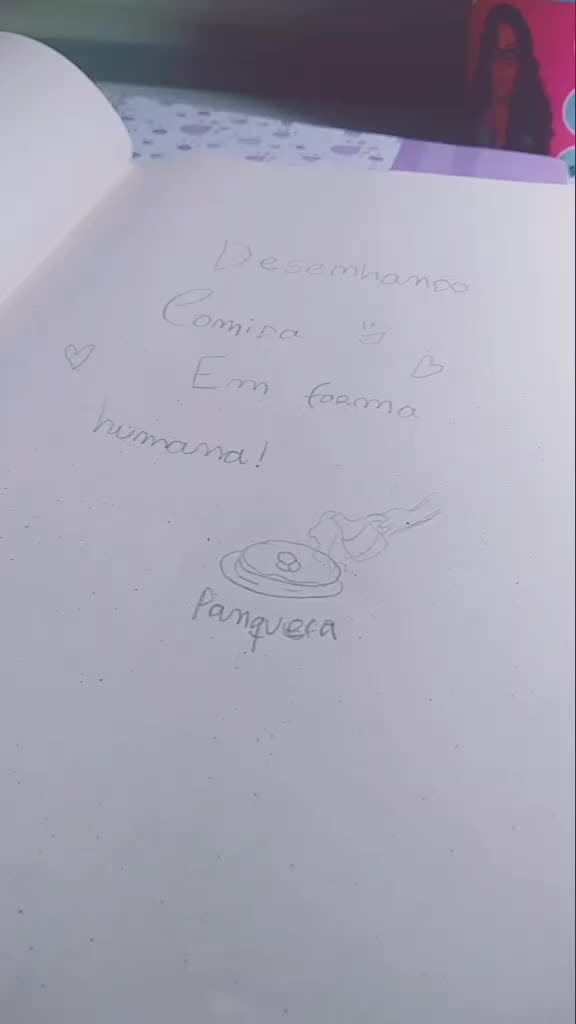 Desenhando
Comida
Em forma
humana!
Panqueca